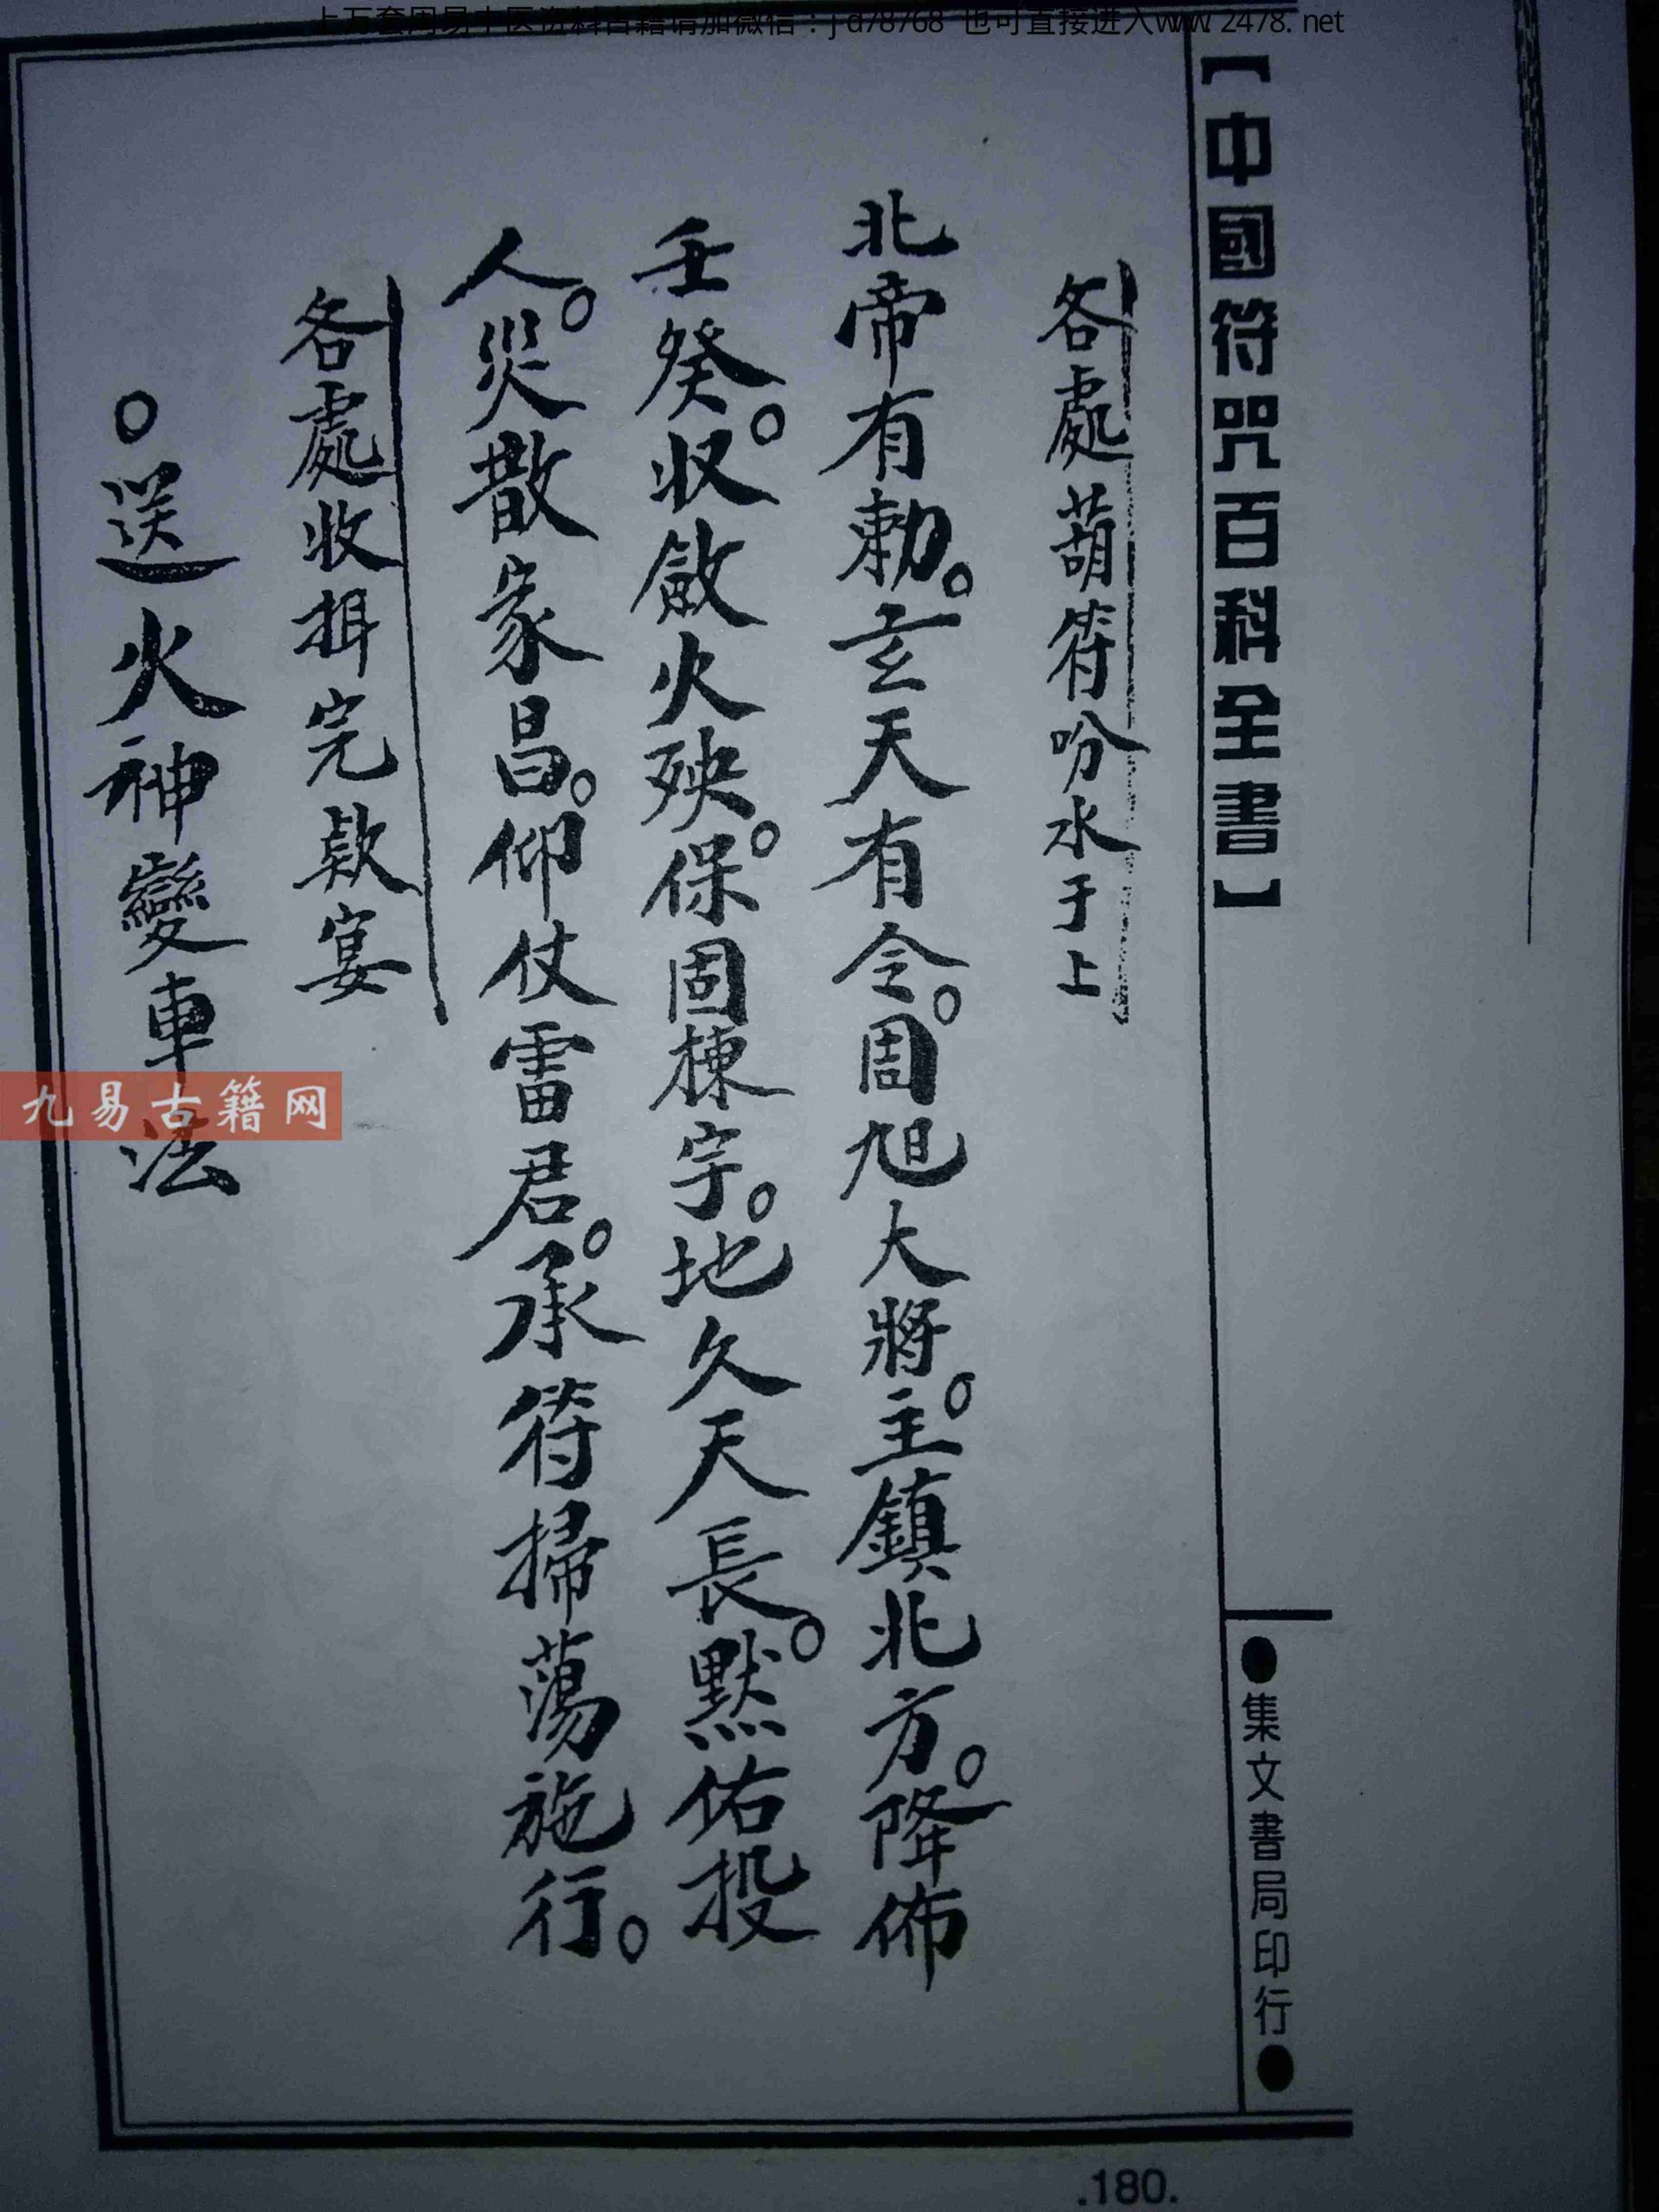 上万套周易中医资料古籍请加微信：jd78768 也可直接进入www.2478.net
【中國符咒百科全書】
●集文書局印行●
各處葫符吩水于上
北帝有勅。玄天有令。周旭大將。主鎮北方。降佈
壬癸。収斂火殃。保固棟宇。地久天長。默佑投
人。災散家昌。仰仗雷君。承符掃蕩施行。
各處收揖完款宴
○送火神變車法
九易古籍网
.180.